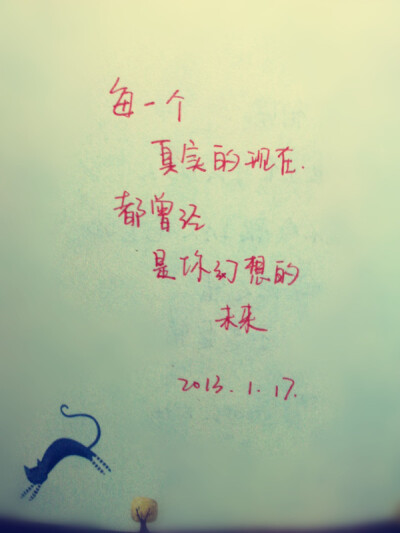 每一个
真实的现在.
都曾经
是你幻想的
未来
2013.1.17.